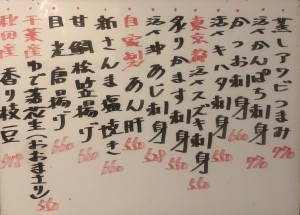 蒸しアワビつまみ 770
活〆かんぱち刺身 770
かつお刺身 660
活〆キハタ刺身
東京都活〆スズキ刺身 550
炙りかます刺身 550
活〆沖あじ刺身 508
自家製あん肝 550
新さんま塩焼き 550
甘鯛松笠揚げ 660
目光唐揚げ 550
千葉産ゆで落花生(おおまさり) 550
秋田産香り枝豆 498